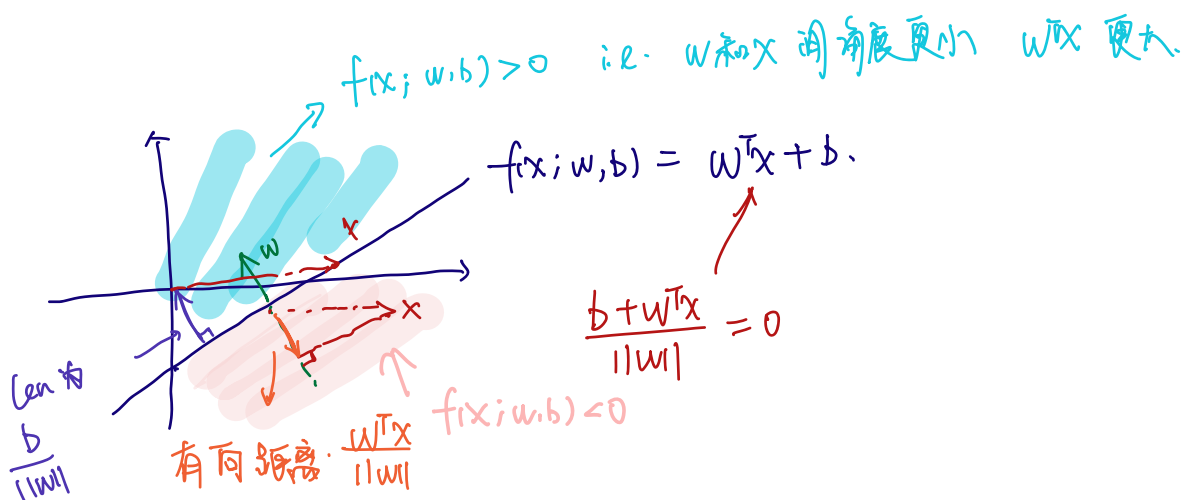 f(x; w,b) > 0 i.e. w和x 间角度更小 wᵀx 更大.
f(x; w,b) = wᵀx + b.
x
w
x
b + wᵀx
‖w‖
= 0
len 为
b
‖w‖
f(x; w,b) < 0
有向距离. wᵀx
‖w‖